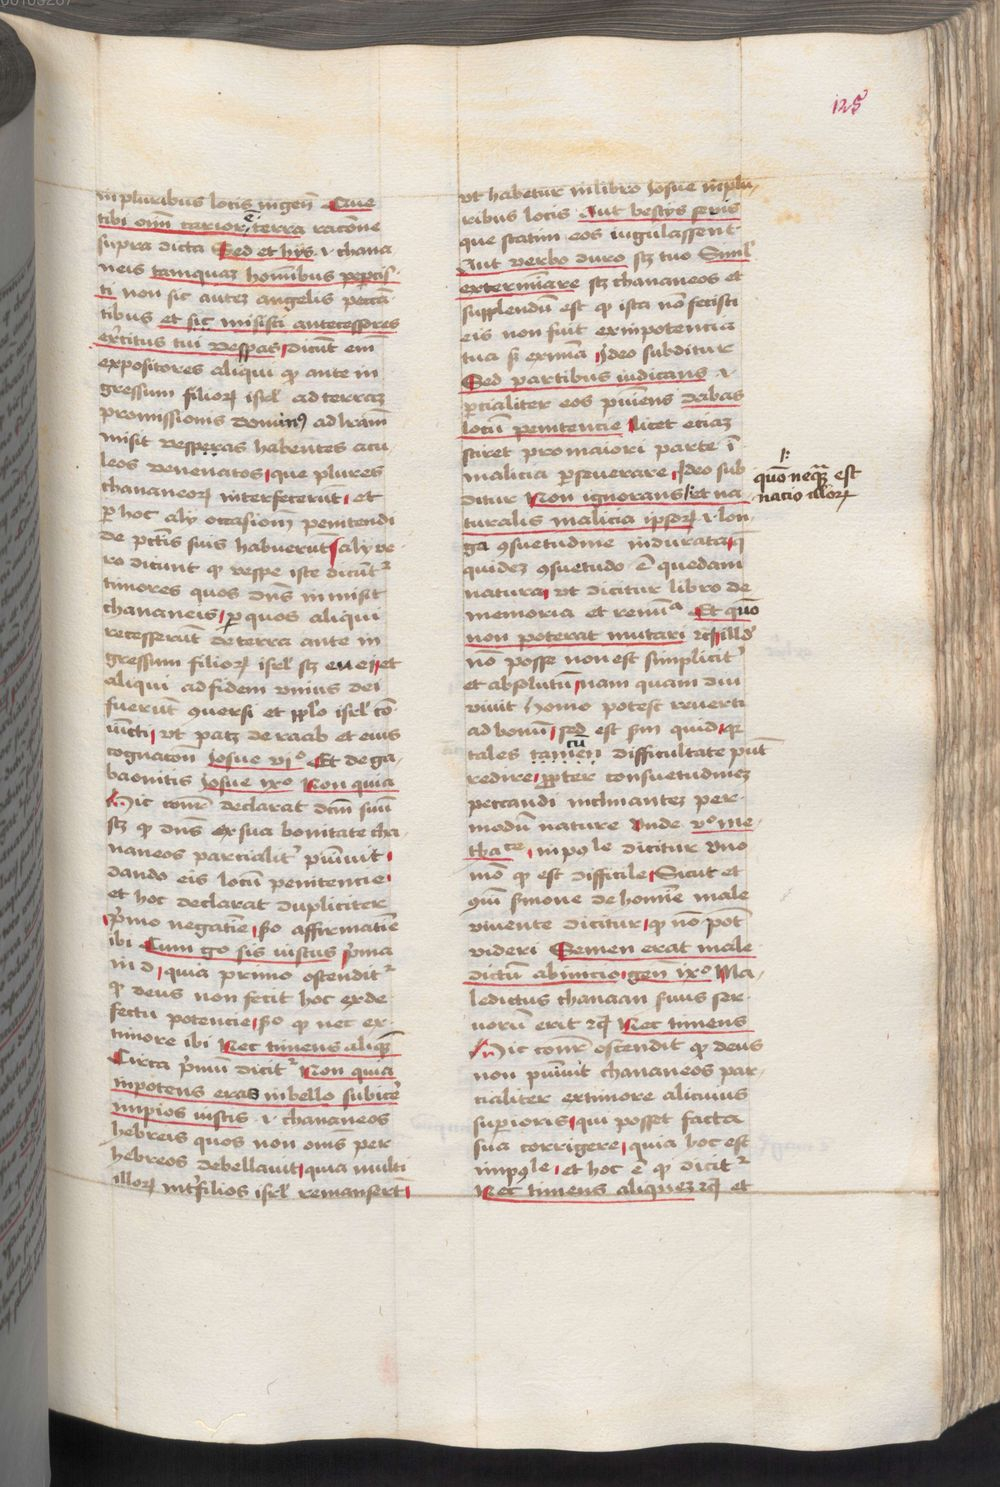 125
in pluribus locis in gen̄ Que
tibi om̄ carior e͛ terra racōne
supra dicta Sed et hys .i. chana
neis tamquaꝫ hominibus peꝑcis
ti non sic auteꝫ angelis peccā
tibus et sic misisti antecessores
ex̄citus tui vespas dicūt em̄
expositores aliqui ꝙ ante in
gressum filioꝝ isrl̄ ad terraꝫ
promissionis dominꝰ ad l̄ram̄
misit vesperas habentes acu
leos venenatos que plures
chananeoꝝ interfecerūt et
ꝑ hoc aly occasionem̄ penitendi
de pctīs suis habuerūt aly ve
ro dicunt ꝙ vespe iste dicūt᷑
timores quos dn̄s inmisit
chananeis ꝑ quos aliqui
recesserūt de terra ante in
gressum filioꝝ isrl̄ sꝫ euei et
aliqui ad fidem vnius dei
fuerūt ꝯuersi et pplo isrl̄ cō
iūcti vt patꝫ de raab et eius
cognatōn̄ Josue viº Et de ga
baonitis Josue ixº Non quia
Hic cōnr̄ declarat dcm̄ suū
sꝫ ꝙ dn̄s ex sua bonitate cha
naneos parcialit᷑ puniuit
dando eis locū penitencie
et hoc declarat dupliciter
p̄mo negatiē so affirmatiē
ibi Cum go sis iustus p̄ma
in d quia primo ostendit᷑
ꝙ deus non fecit hoc ex de
fectu potencie so ꝙ nec ex
timore ibi Nec timens aliqꝫ
Circa p̄mū dicit᷑ Non quia
inpotens eras in bello subice᷑
impios iustis .i. chananeos
hebreis quos non om̄s per
hebreos debellauit quia multi
illoꝝ int᷑ filios isrl̄ remanserūt
vt habetur in libro Josue in plu
ribus locis Aut bestys seuis
que statim eos iugulassent
Aut verbo duro sꝫ tuo Siml̄
exterminare sꝫ chananeos et
supplendū est ꝙ ista nō fecisti
eis non fuit ex inpotencia
tua sꝫ ex mīa Ideo subditur
Sed partibus iudicans .i.
ꝑcialiter eos puniens dabas
locū penitencie licet eciaꝫ
sciret pro maiori parte ī
malicia ꝑseuerare Ideo sub
ditur Non ignorans et na
turalis malicia ipsoꝝ .i. lon
ga ꝯsuetudine indurata
quideꝫ ꝯsuetudo ē quedam
natura vt dicitur libro de
memoria et remīa Et quō
non poterat mutari ⁊c̄ illd᷑
nō posse non est simplicit᷑
et absolutū nam quam diu
viuit homo potest reuerti
ad bonū sed est sm̄ quid qꝛ
tales tamen cū difficultate pn̄t
redire ꝓpter consuetudineꝫ
peccandi inclinanteꝫ per
modū nature Unde vº me
thace inpoꝯle dicitur vno
mō ꝙ est difficile Sicut et
ꝯm̄ sermone de homīe male
viuente dicitur ꝙ nō pot̄
videri Semen erat male
dictū ab inicio gen̄ ixº Ma
ledictus chanaan suus ser
uorū erit ⁊c̄ Nec timens
Hic cōnr̄ ostendit ꝙ deus
non puniuit chananeos par
cialiter ex timore alicuius
superioris qui posset facta
sua corrigere quia hoc est
inpoꝯle et hoc ē ꝙ dicit᷑
Nec timens aliqueꝫ ⁊c̄ et
quō neqꝫ est
nacio illoꝝ